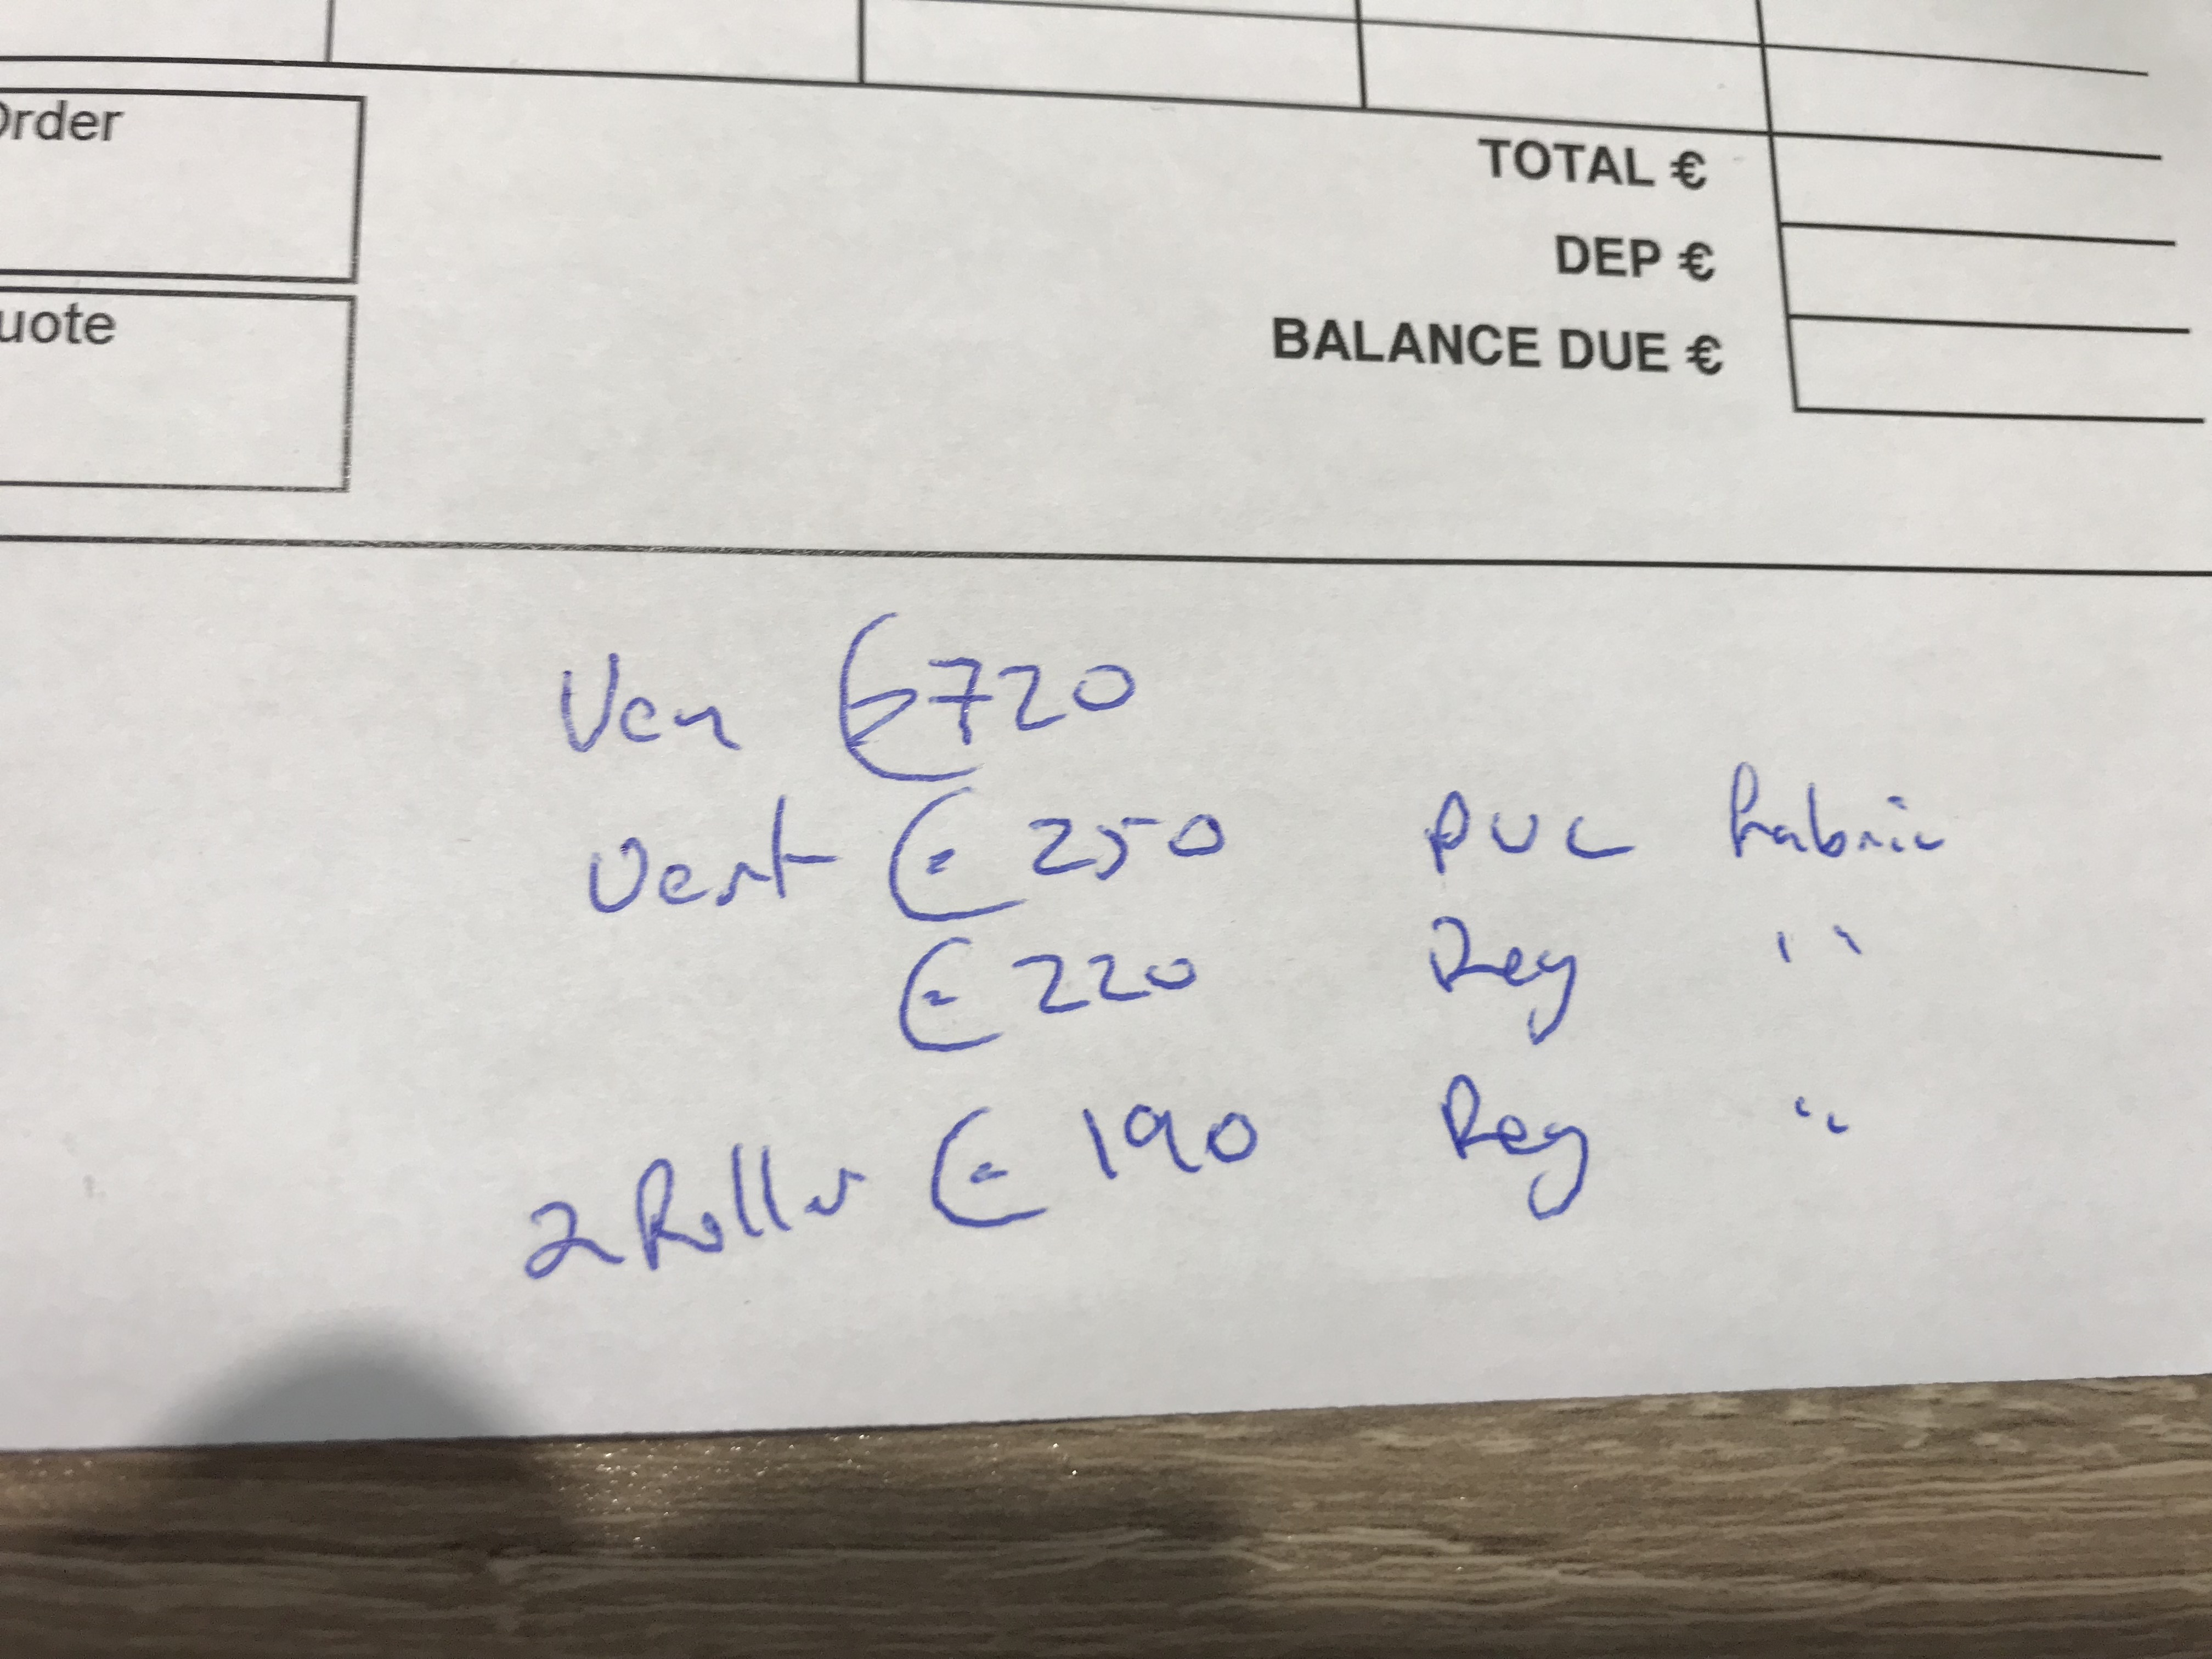 Order
TOTAL €
DEP €
uote
BALANCE DUE €
Ven €720
Vert €250 PVC Fabric
€220 Reg "
2 Roller €190 Reg "